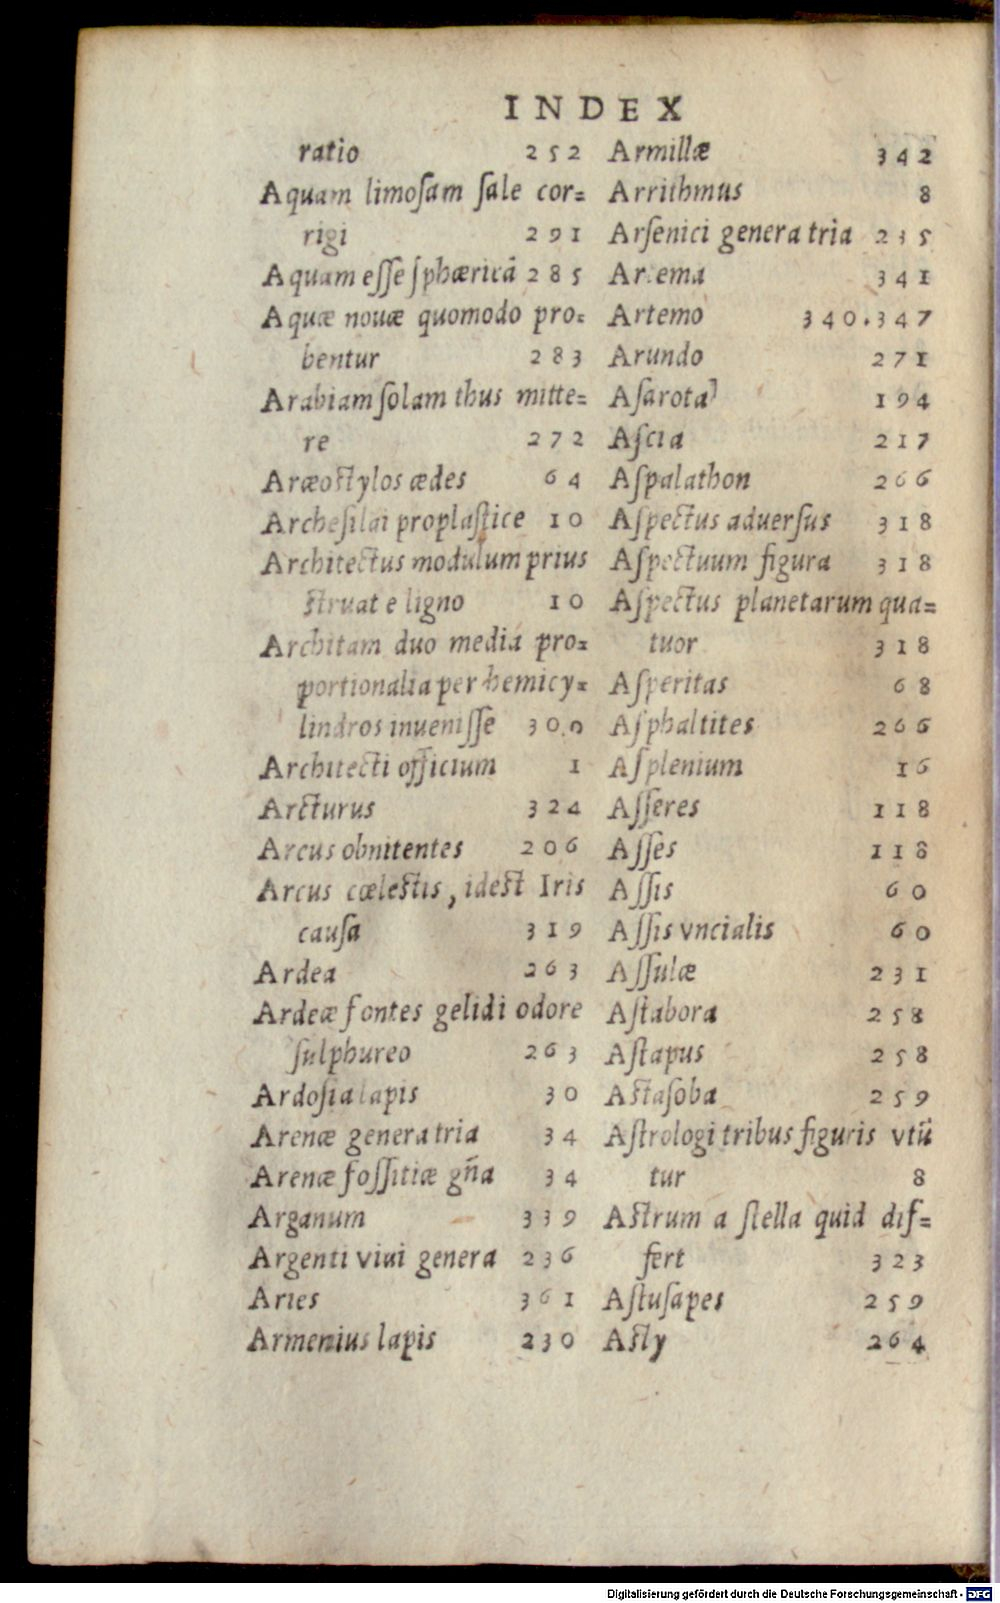 INDEX
ratio 252
Aquam limoſam ſale cor=
rigi 291
Aquam eſſe ſphæricā 285
Aquæ nouæ quomodo pro=
bentur 283
Arabiam ſolam thus mitte=
re 272
Aræoſtylos ædes 64
Archeſilai proplaſtice 10
Architectus modulum prius
ſtruat e ligno 10
Architam duo media pro=
portionalia per hemicy=
lindros inueniſſe 300
Architecti officium 1
Arcturus 324
Arcus obnitentes 206
Arcus cœleſtis, ideſt Iris
cauſa 319
Ardea 263
Ardeæ fontes gelidi odore
ſulphureo 263
Ardoſia lapis 30
Arenæ genera tria 34
Arenæ foſſitiæ gña 34
Arganum 339
Argenti viui genera 236
Aries 361
Armenius lapis 230
Armillæ 342
Arrithmus 8
Arſenici genera tria 235
Artema 341
Artemo 340.347
Arundo 271
Aſarota 194
Aſcia 217
Aſpalathon 266
Aſpectus aduerſus 318
Aſpectuum figura 318
Aſpectus planetarum qua=
tuor 318
Aſperitas 68
Aſphaltites 266
Aſplenium 16
Aſſeres 118
Aſſes 118
Aſſis 60
Aſſis vncialis 60
Aſſulæ 231
Aſtabora 258
Aſtapus 258
Aſtaſoba 259
Aſtrologi tribus figuris vtū
tur 8
Aſtrum a ſtella quid dif=
fert 323
Aſtuſapes 259
Aſty 264
Digitalisierung gefördert durch die Deutsche Forschungsgemeinschaft - DFG